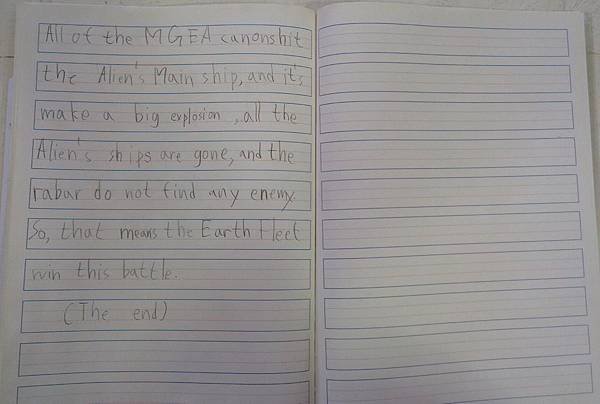 All of the MGEA canonshit
the Alien's Main ship, and it's
make a big explosion, all the
Alien's ships are gone, and the
rabar do not find any enemy.
So, that means the Earth Fleet
win this battle.
(The end)